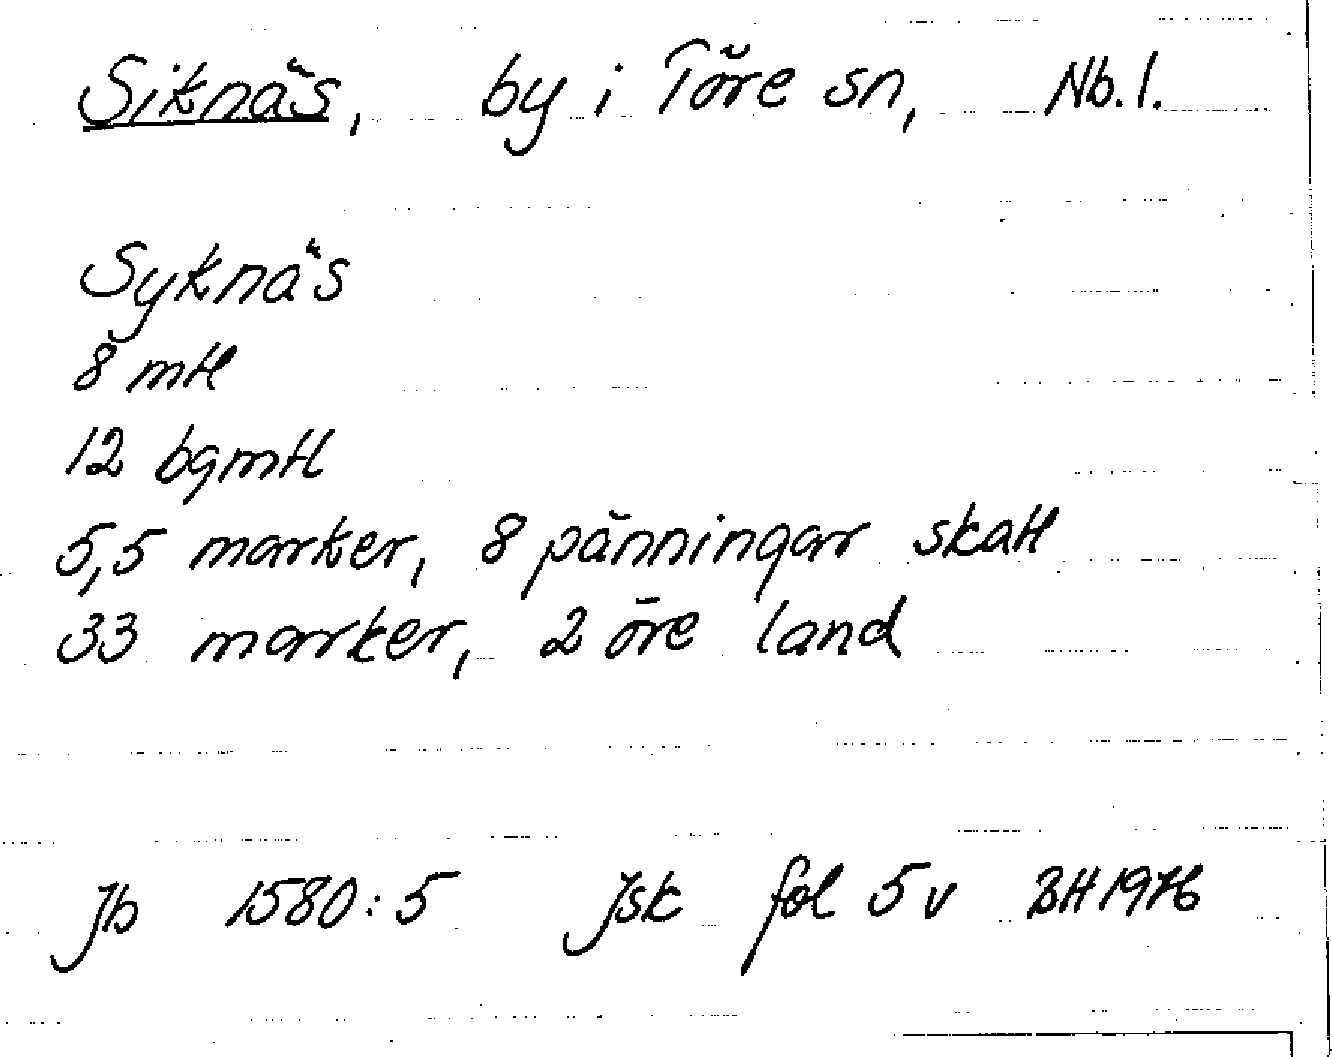 Siknäs, by i Töre sn, Nb.l.
Syknäs
8 mtl
12 bgmtl
5,5 marker, 8 pänningar skatt
33 marker, 2 öre land
Jb 1580:5 Jsk fol 5v BH 1976